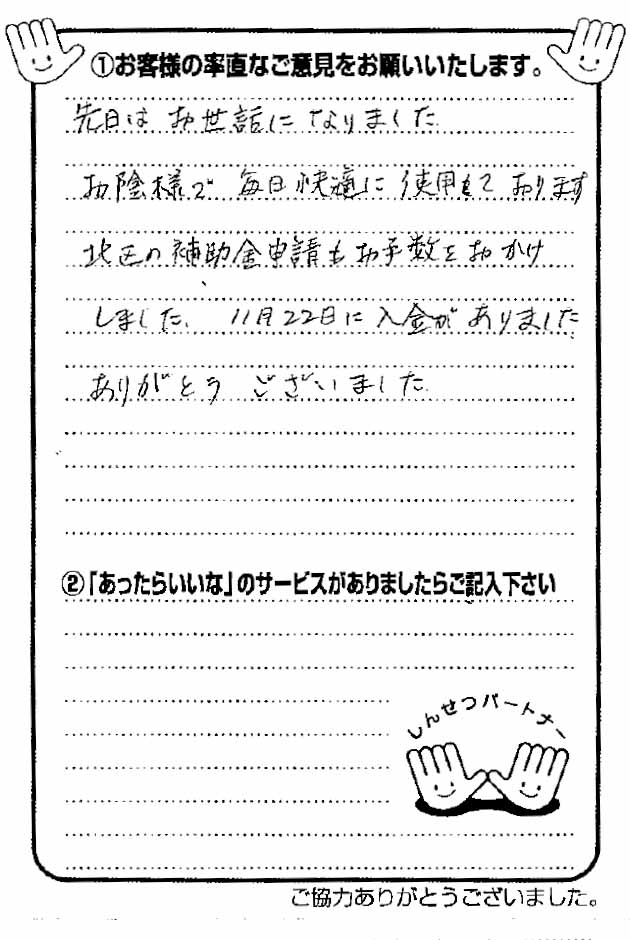 ①お客様の率直なご意見をお願いいたします。
先日は お世話に なりました
お陰様で 毎日快適に使用もて おります
地区の補助金申請もお手数をおかけ
しました、11月22日に入金がありました
ありがとう ございました
②「あったらいいな」のサービスがありましたらご記入下さい
しんせつパートナー
ご協力ありがとうございました。